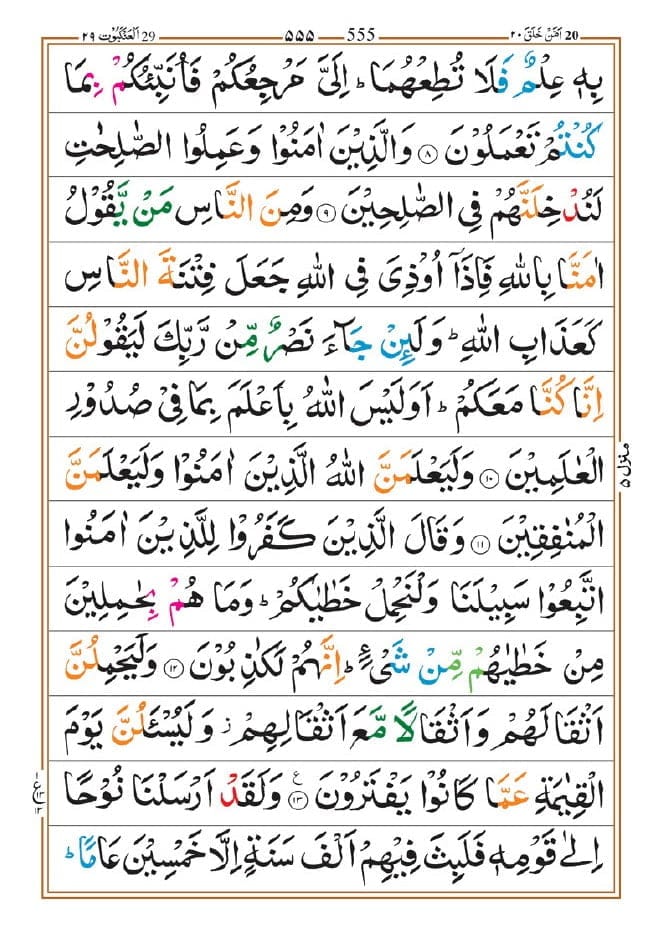 29 اَلْعَنْكَبُوْت ٢٩ ٥٥٥ 555 اَمَّنْ خَلَقَ ٢٠ 20
بِهٖ عِلْمٌ فَلَا تُطِعْهُمَا ؕ اِلَیَّ مَرْجِعُكُمْ فَاُنَبِّئُكُمْ بِمَا
كُنْتُمْ تَعْمَلُوْنَ ۝٨ وَالَّذِیْنَ اٰمَنُوْا وَعَمِلُوا الصّٰلِحٰتِ
لَنُدْخِلَنَّهُمْ فِی الصّٰلِحِیْنَ ۝٩ وَمِنَ النَّاسِ مَنْ یَّقُوْلُ
اٰمَنَّا بِاللّٰهِ فَاِذَاۤ اُوْذِیَ فِی اللّٰهِ جَعَلَ فِتْنَةَ النَّاسِ
كَعَذَابِ اللّٰهِ ؕ وَلَىِٕنْ جَآءَ نَصْرٌ مِّنْ رَّبِّكَ لَیَقُوْلُنَّ
اِنَّا كُنَّا مَعَكُمْ ؕ اَوَلَیْسَ اللّٰهُ بِاَعْلَمَ بِمَا فِیْ صُدُوْرِ
الْعٰلَمِیْنَ ۝١٠ وَلَیَعْلَمَنَّ اللّٰهُ الَّذِیْنَ اٰمَنُوْا وَلَیَعْلَمَنَّ
الْمُنٰفِقِیْنَ ۝١١ وَقَالَ الَّذِیْنَ كَفَرُوْا لِلَّذِیْنَ اٰمَنُوا
اتَّبِعُوْا سَبِیْلَنَا وَلْنَحْمِلْ خَطٰیٰكُمْ ؕ وَمَا هُمْ بِحٰمِلِیْنَ
مِنْ خَطٰیٰهُمْ مِّنْ شَیْءٍ ؕ اِنَّهُمْ لَكٰذِبُوْنَ ۝١٢ وَلَیَحْمِلُنَّ
اَثْقَالَهُمْ وَاَثْقَالًا مَّعَ اَثْقَالِهِمْ ز وَلَیُسْـَٔلُنَّ یَوْمَ
الْقِیٰمَةِ عَمَّا كَانُوْا یَفْتَرُوْنَ ۝١٣ ع وَلَقَدْ اَرْسَلْنَا نُوْحًا
اِلٰی قَوْمِهٖ فَلَبِثَ فِیْهِمْ اَلْفَ سَنَةٍ اِلَّا خَمْسِیْنَ عَامًا ؕ
منزل ٥
ع ١٣ ١٣